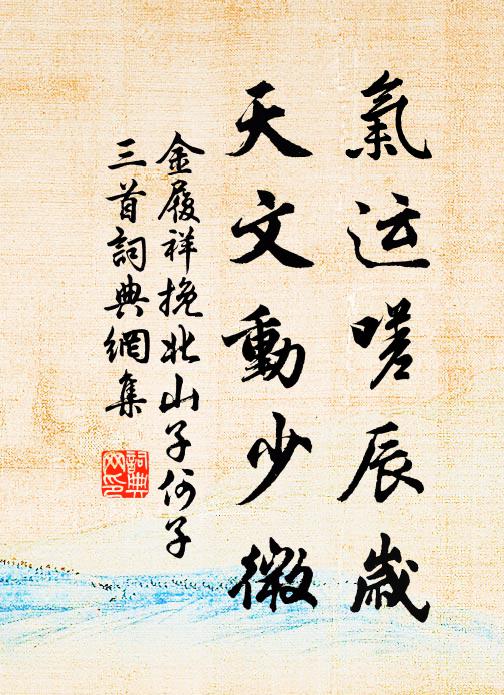 氣运嗟辰歲
天文動少微
金履祥挽北山子何子
三首詞典網集
詞典
网印